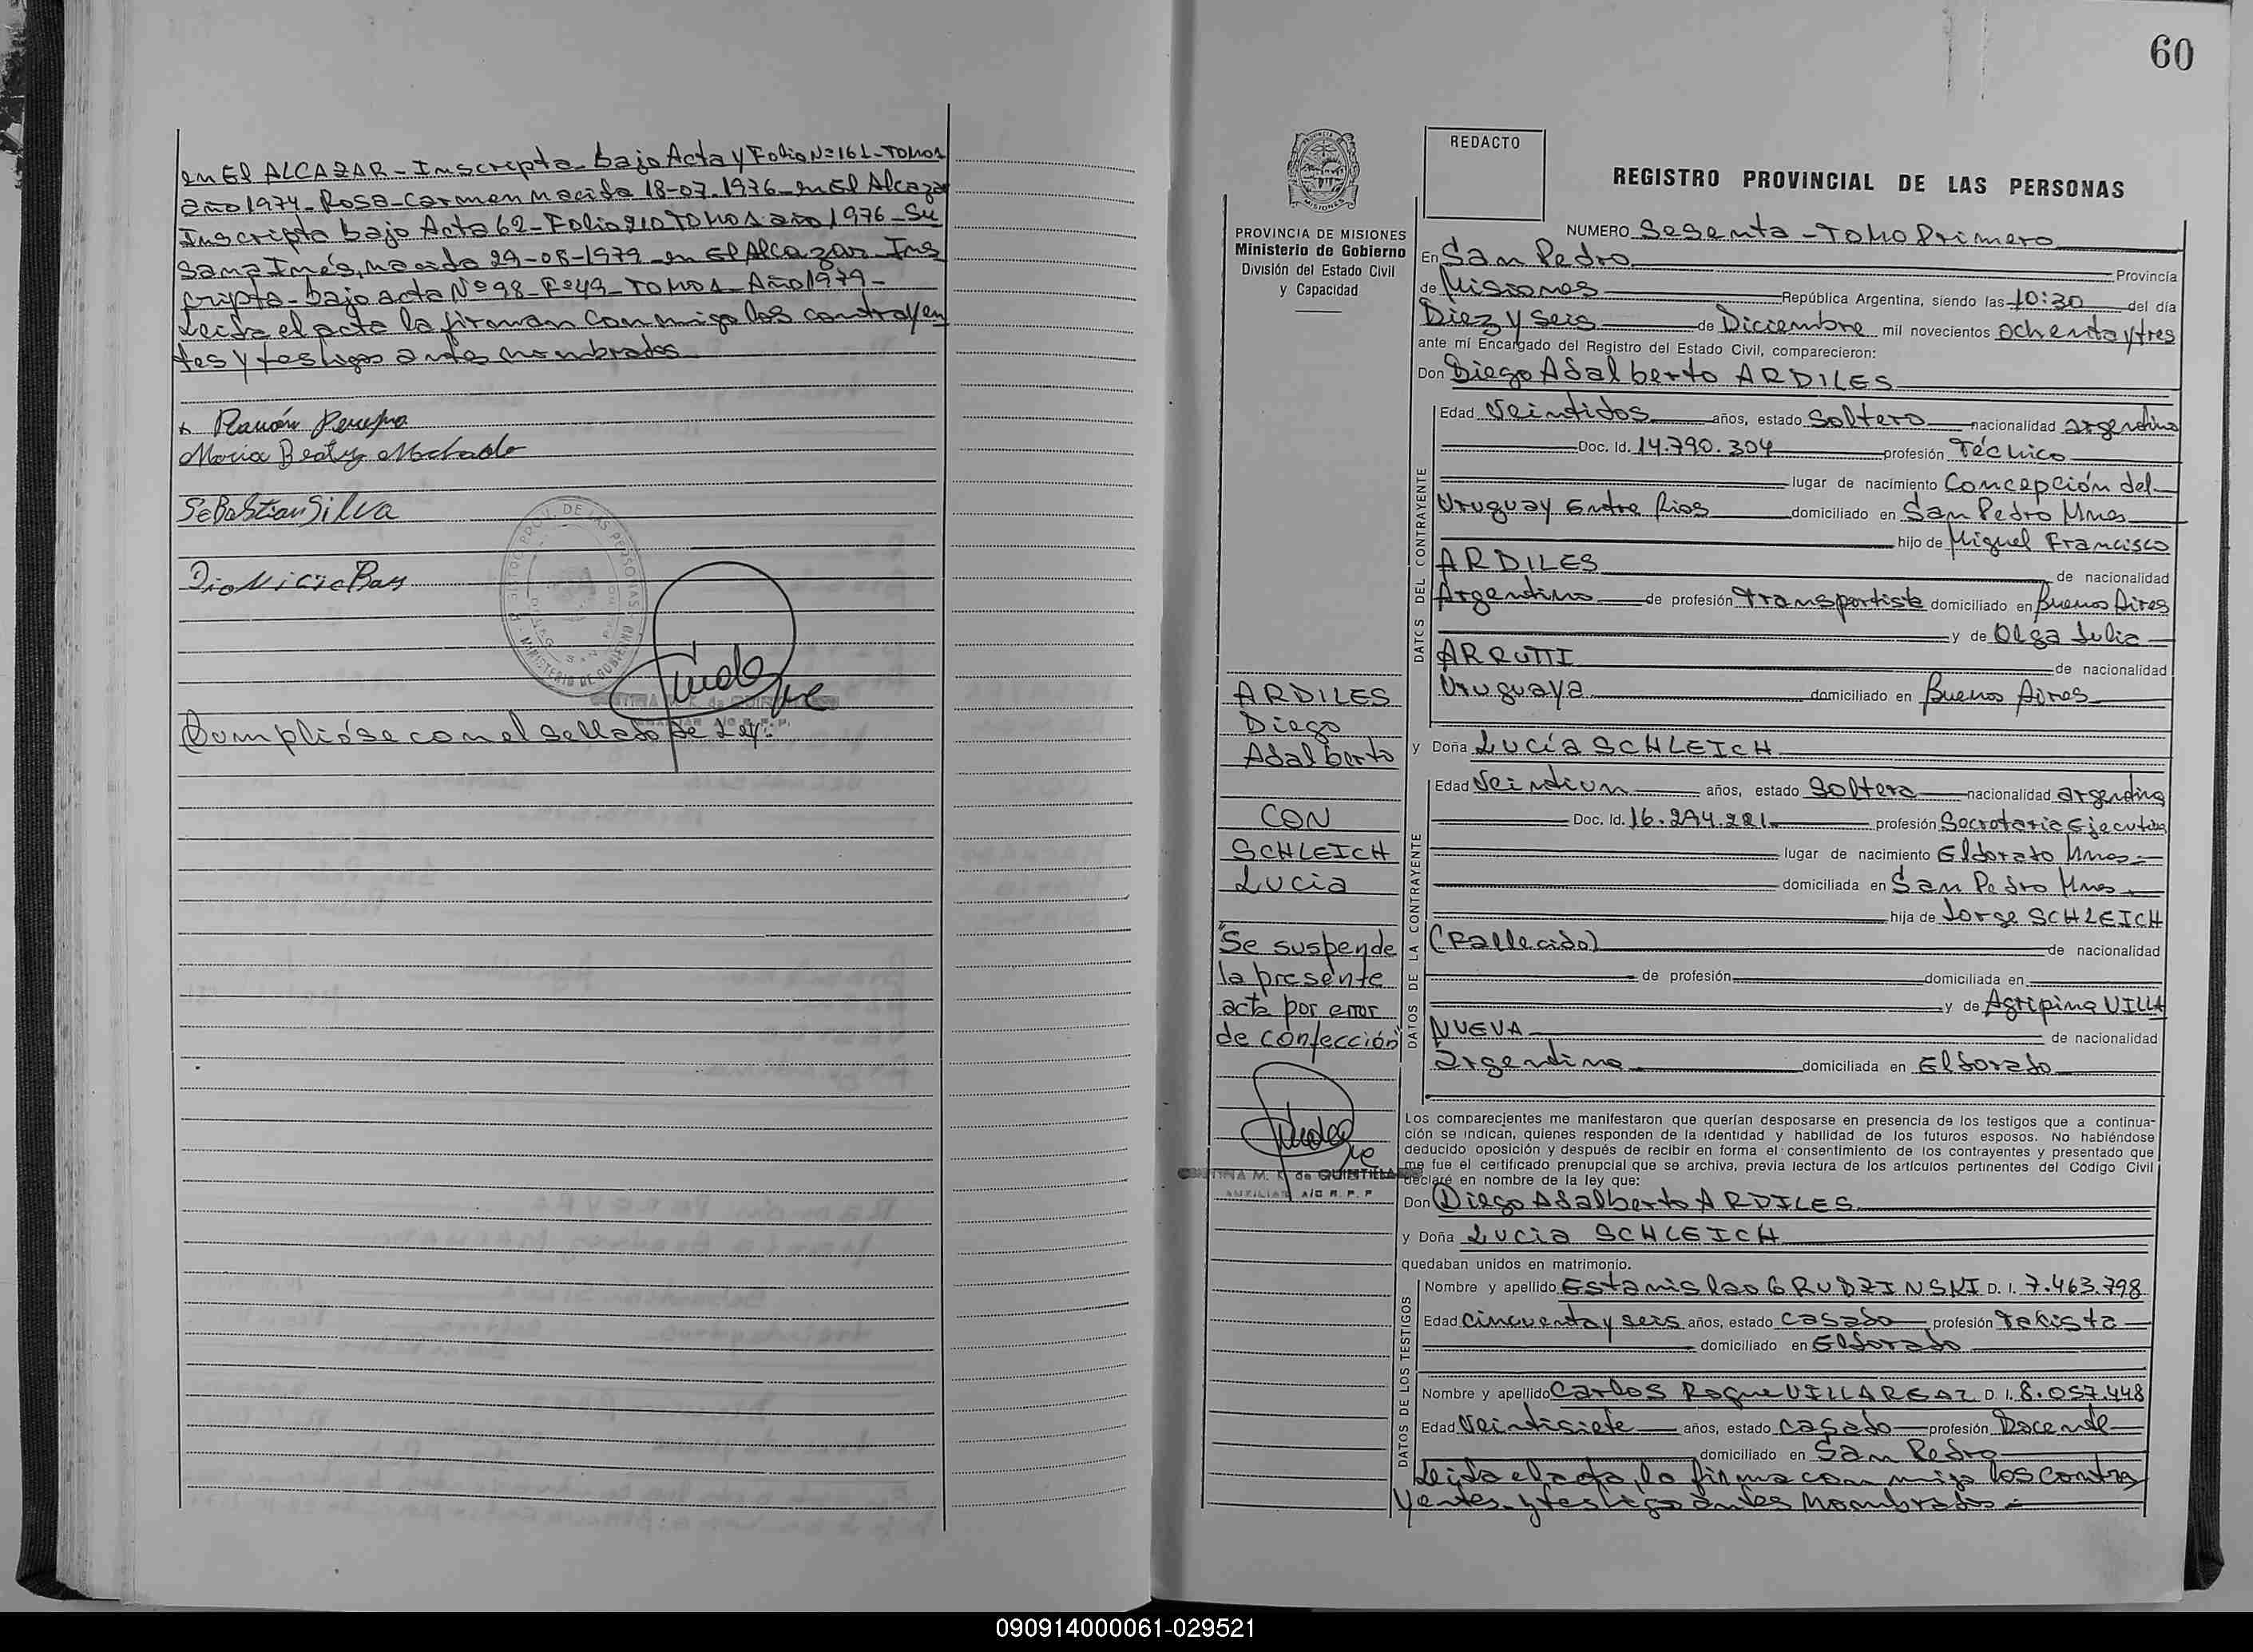 en El ALCAZAR - Inscripta - bajo Acta y Folio Nº 161 - TOMO 1
año 1974 - Rosa - Carmen Nacida 18-07-1976 - en El Alcazar
Inscripta bajo Acta 62 - Folio TOMO 1 año 1976 - Su
sana Inés, nacida 29-08-1979 - en El Alcazar - Ins
cripta - bajo acta Nº 98 - Fº 49 - TOMO 1 - Año 1979 -
Leida el acta la firman conmigo los contrayen
tes y testigos antes nombrados
Ramón Pereyra
Maria Beatriz Machado
SeBaStian Silva
Cumplióse con el sellado de Ley:
60
REDACTO
REGISTRO PROVINCIAL DE LAS PERSONAS
PROVINCIA DE MISIONES
Ministerio de Gobierno
División del Estado Civil
y Capacidad
NUMERO Sesenta - TOMO Primero
En San Pedro Provincia
de Misiones República Argentina, siendo las 10:30 del día
Diez y seis de Diciembre mil novecientos ochenta y tres
ante mí Encargado del Registro del Estado Civil, comparecieron:
Don Diego Adalberto ARDILES
DATOS DEL CONTRAYENTE
Edad Veintidos años, estado Soltero nacionalidad argentino
Doc. Id. 14.790.304 profesión Técnico
lugar de nacimiento Concepción del
Uruguay Entre Rios domiciliado en San Pedro Mnes
hijo de Miguel Francisco
ARDILES de nacionalidad
Argentino de profesión transportista domiciliado en Buenos Aires
y de Olga Julia
ARRUTTI de nacionalidad
Uruguaya domiciliado en Buenos Aires
ARDILES
Diego
Adalberto
CON
SCHLEICH
Lucia
"Se suspende
la presente
acta por error
de confección"
M. K. de QUINTILLA
AUXILIAR A/C R. P. P.
y Doña Lucía SCHLEICH
DATOS DE LA CONTRAYENTE
Edad Veintiun años, estado Soltera nacionalidad argentina
Doc. Id. 16.294.221 profesión Secretaria Ejecutiva
lugar de nacimiento Eldorado Mnes
domiciliada en San Pedro Mnes
hija de Jorge SCHLEICH
(Fallecido) de nacionalidad
de profesión domiciliada en
y de Agripina VILLA
NUEVA de nacionalidad
argentina domiciliada en Eldorado
Los comparecientes me manifestaron que querían desposarse en presencia de los testigos que a continua-
ción se indican, quienes responden de la identidad y habilidad de los futuros esposos. No habiéndose
deducido oposición y después de recibir en forma el consentimiento de los contrayentes y presentado que
me fue el certificado prenupcial que se archiva, previa lectura de los artículos pertinentes del Código Civil
declaré en nombre de la ley que:
Don Diego Adalberto ARDILES
y Doña Lucia SCHLEICH
quedaban unidos en matrimonio.
DATOS DE LOS TESTIGOS
Nombre y apellido Estanislao GRUDZINSKI D. I. 7.463.798
Edad cincuenta y seis años, estado casado profesión
domiciliado en Eldorado
Nombre y apellido Carlos Roque VILLAREAL D. I. 8.057.448
Edad Veintisiete años, estado casado profesión Docente
domiciliado en San Pedro
Leida el acta, la firma conmigo los contra
yentes y testigo antes nombrados
090914000061-029521